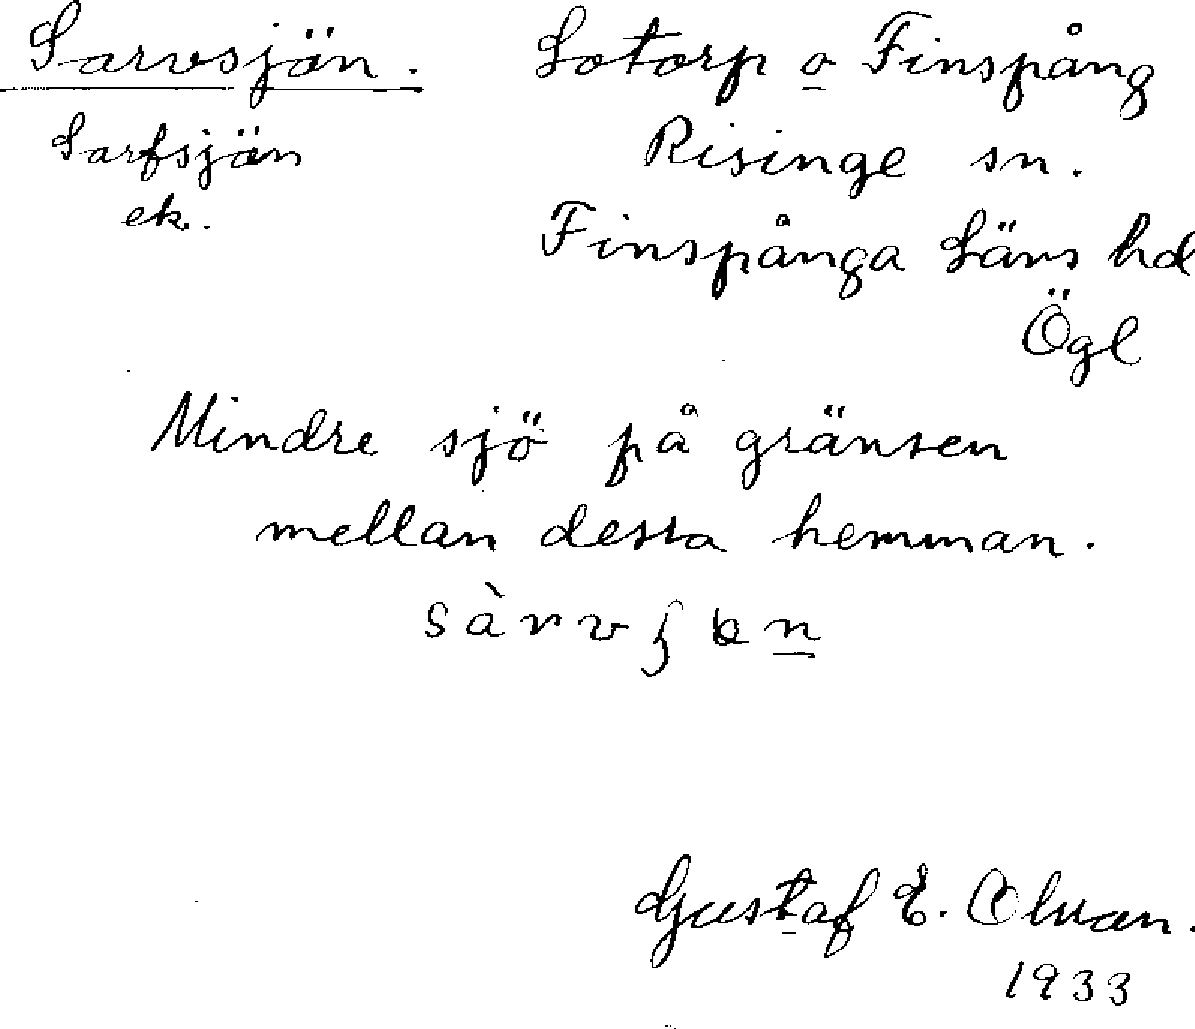 Sarvsjön.
Sarfsjön
ek.
Lotorp o Finspång
Risinge sn.
Finspånga Läns hd
Ögl
Mindre sjö på gränsen
mellan dessa hemman.
Gustaf E. Olsson.
1933